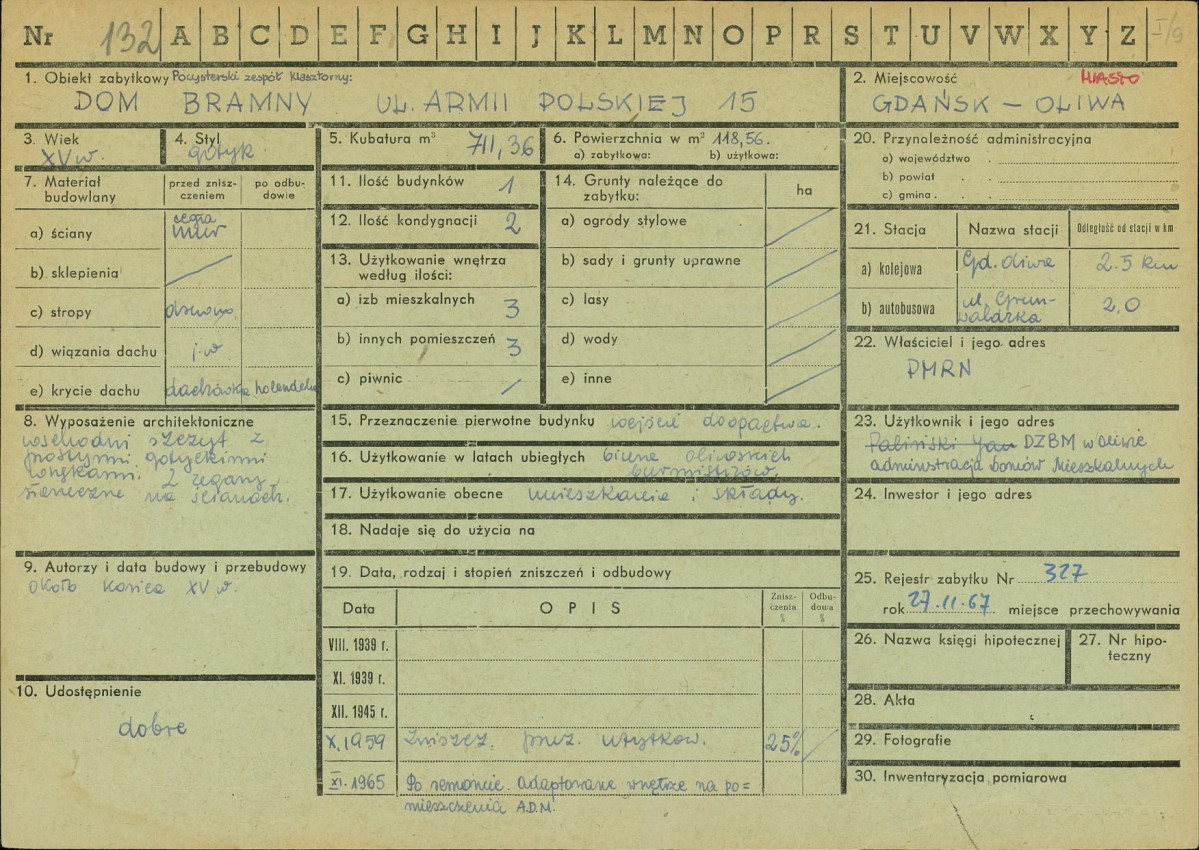 Nr 132 A B C D E F G H I J K L M N O P R S T U V W X Y Z I/9
1. Obiekt zabytkowy Pocysterski zespół klasztorny:
DOM BRAMNY UL. ARMII POLSKIEJ 15
2. Miejscowość MIASTO
GDAŃSK – OLIWA
3. Wiek
XV w.
4. Styl
gotyk
5. Kubatura m³ 711,36
6. Powierzchnia w m² 118,56.
a) zabytkowa: b) użytkowa:
20. Przynależność administracyjna
a) województwo
b) powiat
c) gmina
7. Materiał budowlany
przed znisz-
czeniem
po odbu-
dowie
a) ściany cegła
mur
b) sklepienia
c) stropy drewno
d) wiązania dachu j.w
e) krycie dachu dachówka holenderka
11. Ilość budynków 1
12. Ilość kondygnacji 2
13. Użytkowanie wnętrza
według ilości:
a) izb mieszkalnych 3
b) innych pomieszczeń 3
c) piwnic /
14. Grunty należące do
zabytku:
ha
a) ogrody stylowe
b) sady i grunty uprawne
c) lasy
d) wody
e) inne
21. Stacja Nazwa stacji Odległość od stacji w km
a) kolejowa Gd. Oliwa 2.5 km
b) autobusowa ul. Grun-
waldzka 2.0
22. Właściciel i jego adres
PMRN
8. Wyposażenie architektoniczne
wschodni szczyt z
prostymi gotyckimi
wnękami. 2 zegary
słoneczne na ścianach.
15. Przeznaczenie pierwotne budynku wejście do opactwa.
16. Użytkowanie w latach ubiegłych biura oliwskich
burmistrzów.
17. Użytkowanie obecne mieszkania i składy.
18. Nadaje się do użycia na
23. Użytkownik i jego adres
Jan DZBM w Oliwie
administracja Domów Mieszkalnych
24. Inwestor i jego adres
9. Autorzy i data budowy i przebudowy
około końca XV w.
19. Data, rodzaj i stopień zniszczeń i odbudowy
Data OPIS Znisz-
czenia
% Odbu-
dowa
%
VIII. 1939 r.
XI. 1939 r.
XII. 1945 r.
X. 1959 Zniszcz. przez. użytkow. 25% /
XI. 1965 Po remoncie adaptowane wnętrze na po=
mieszczenia A.D.M.
25. Rejestr zabytku Nr 327
rok 27.11.67 miejsce przechowywania
26. Nazwa księgi hipotecznej
27. Nr hipo-
teczny
10. Udostępnienie
dobre
28. Akta
29. Fotografie
30. Inwentaryzacja pomiarowa